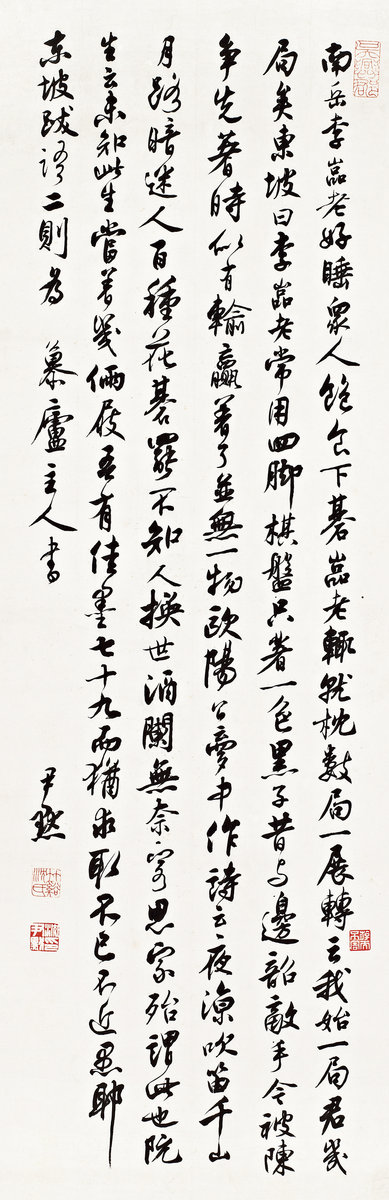 南岳李喦老好睡眾人飽食下碁喦老輒就枕數局一展轉云我始一局君幾
局矣東坡曰李喦老常用四脚棋盤只著一色黑子昔与邊韶敵手今被陳
争先著時似有輸贏著了並無一物歐陽公夢中作詩云夜涼吹笛千山
月路暗迷人百種花碁罷不知人換世酒闌無奈客思家殆謂此也阮
生云未知此生當著幾倆屐吾有佳墨七十九而猶求取不已不近愚耶
東坡跋語二則為 慕廬主人書
尹默
竹谿沈氏